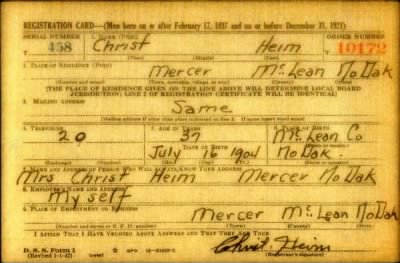 REGISTRATION CARD—(Men born on or after February 17, 1897 and on or before December 31, 1921)
SERIAL NUMBER 1. NAME (Print) ORDER NUMBER
458 Christ Heim 10172
(First) (Middle) (Last)
2. PLACE OF RESIDENCE (Print)
Mercer McLean NoDak
(Number and street) (Town, township, village, or city) (County) (State)
[THE PLACE OF RESIDENCE GIVEN ON THE LINE ABOVE WILL DETERMINE LOCAL BOARD
JURISDICTION; LINE 2 OF REGISTRATION CERTIFICATE WILL BE IDENTICAL]
3. MAILING ADDRESS
Same
[Mailing address if other than place indicated on line 2. If same insert word same]
4. TELEPHONE 5. AGE IN YEARS 6. PLACE OF BIRTH
20 37 McLean Co
DATE OF BIRTH
July 16 1904 NoDak
(Exchange) (Number) (Mo.) (Day) (Yr.) (State or country)
7. NAME AND ADDRESS OF PERSON WHO WILL ALWAYS KNOW YOUR ADDRESS
Mrs Christ Heim Mercer NoDak
8. EMPLOYER'S NAME AND ADDRESS
My self
9. PLACE OF EMPLOYMENT OR BUSINESS
Mercer McLean NoDak
(Number and street or R. F. D. number) (Town) (County) (State)
I AFFIRM THAT I HAVE VERIFIED ABOVE ANSWERS AND THAT THEY ARE TRUE.
D. S. S. Form 1
(Revised 1-1-42) (over) GPO Christ Heim